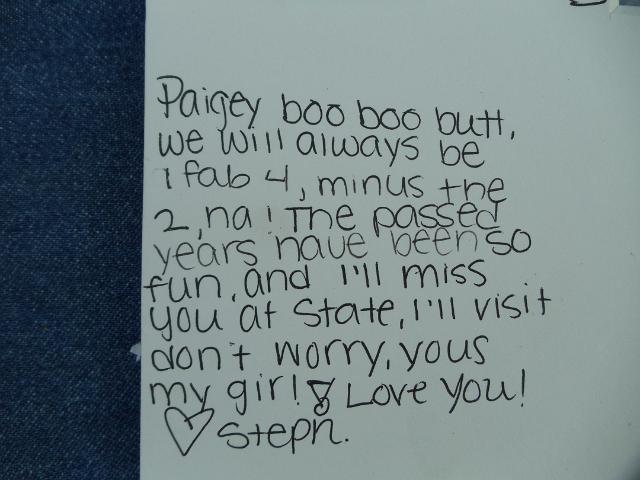 Paigey boo boo butt,
we will always be
1 fab 4, minus the
2, ha! The passed
years have been so
fun, and I'll miss
you at State, I'll visit
don't worry, yous
my girl! Love You!
♡ Steph.